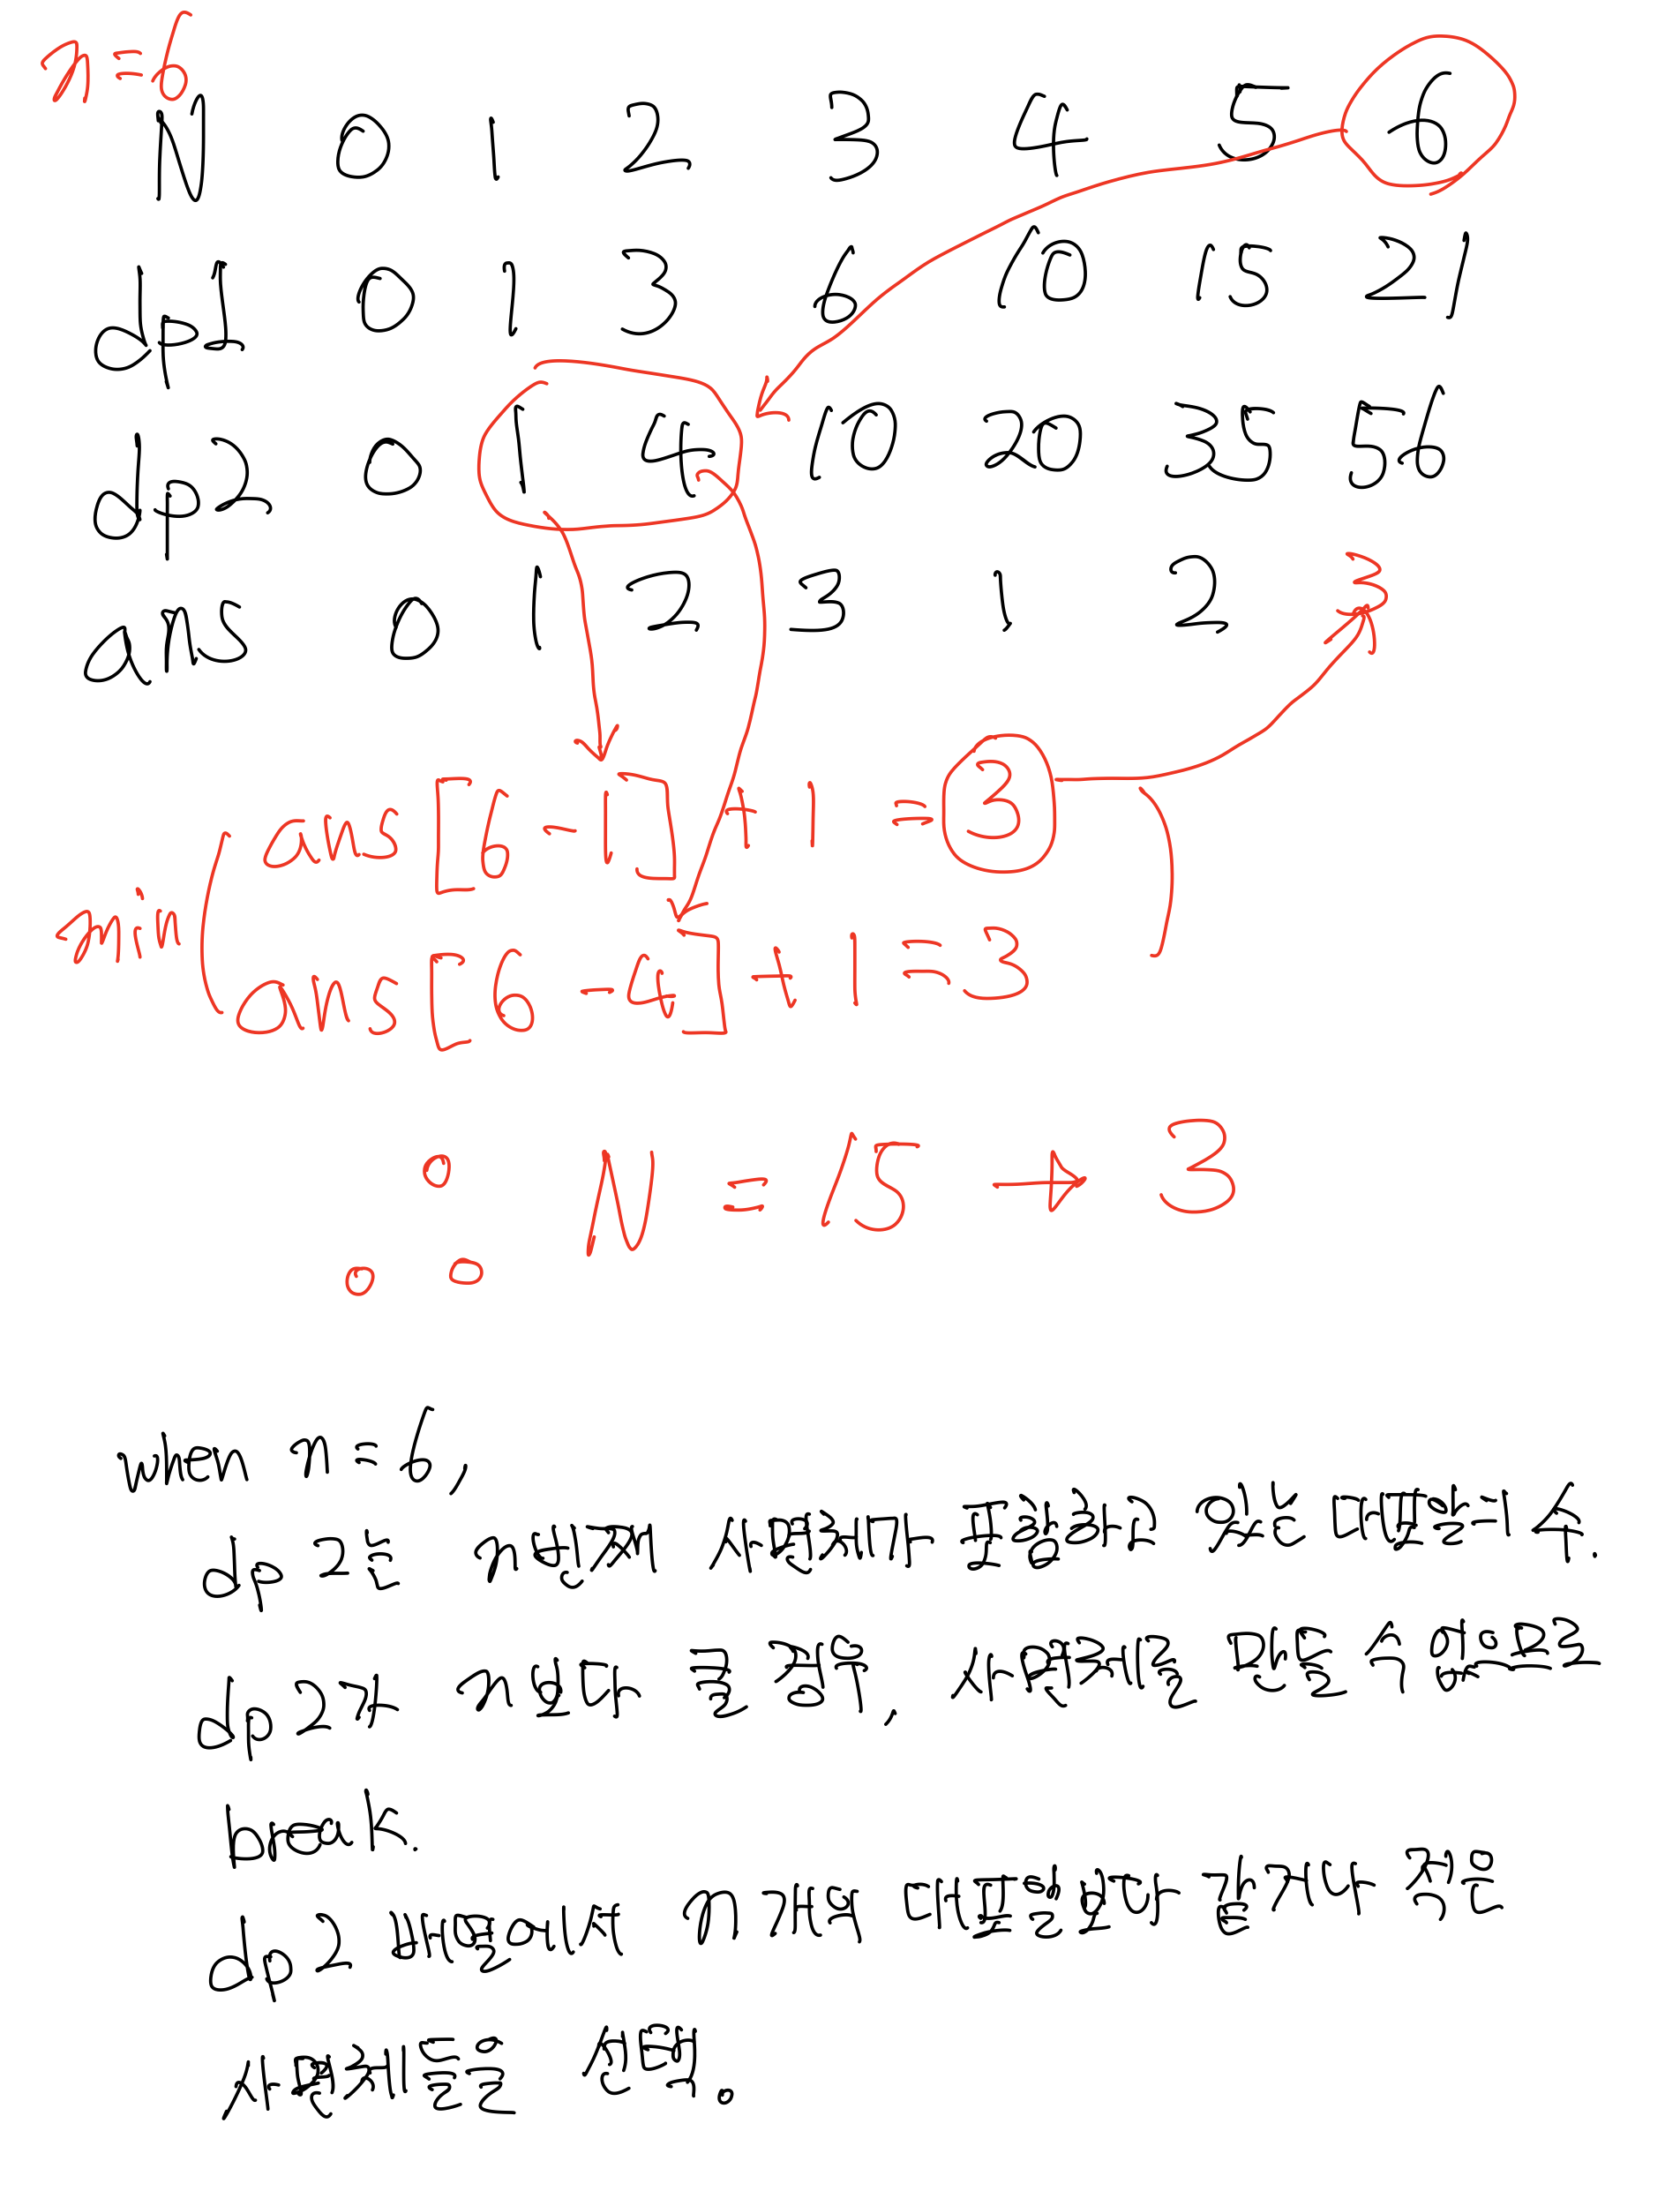 n=6
N 0 1 2 3 4 5 6
dp1 0 1 3 6 10 15 21
dp2 0 1 4 10 20 35 56
ans 0 1 2 3 1 2 3
ans[6-1]+1=3
min
ans[6-4]+1=3
∴ N=15→3
when n=6,
dp2는 n번째 사면체가 포함하고 있는 대포알의 수.
dp2가 n보다 클 경우, 사면체를 만들 수 없으므로
break.
dp2 배열에서 n개의 대포알보다 같거나 적은
사면체들을 선택.